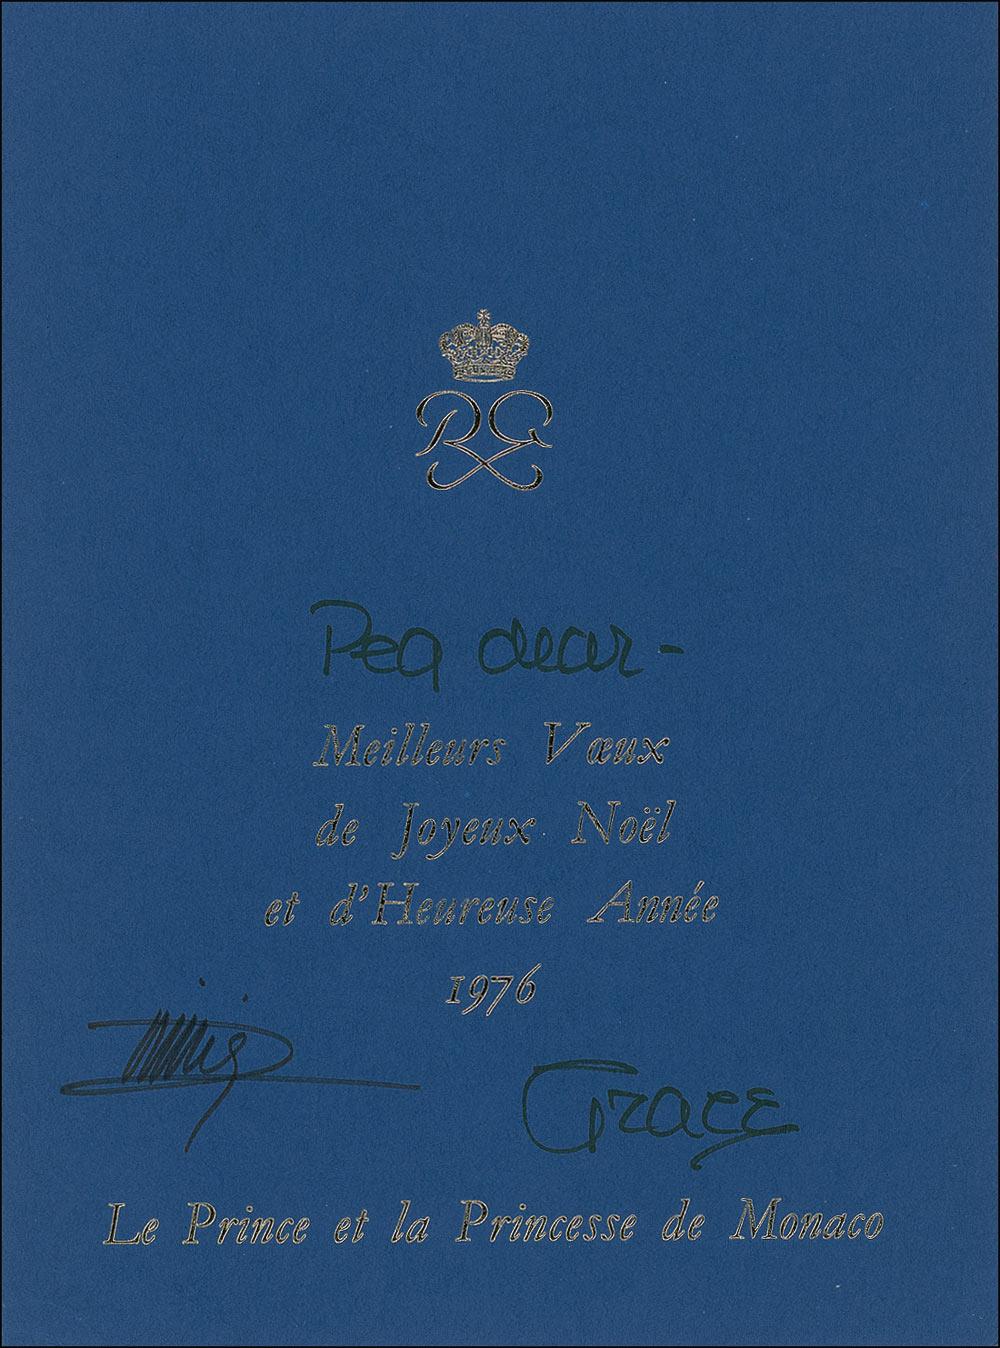 RG
Peg dear -
Meilleurs Vœux
de Joyeux Noël
et d'Heureuse Année
1976
Grace
Le Prince et la Princesse de Monaco